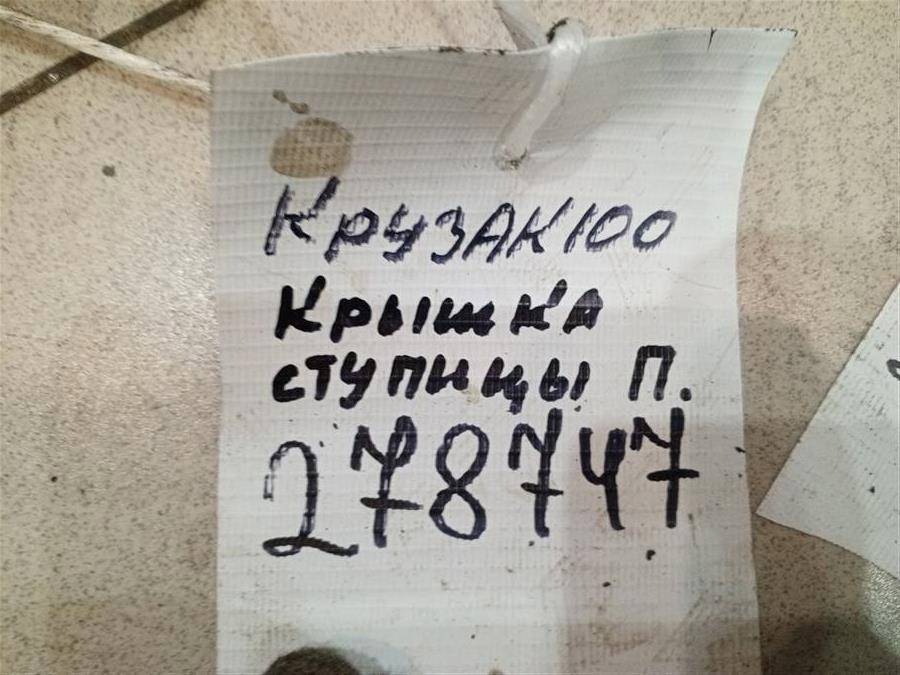 Крузак 100
Крышка
ступицы П.
278747